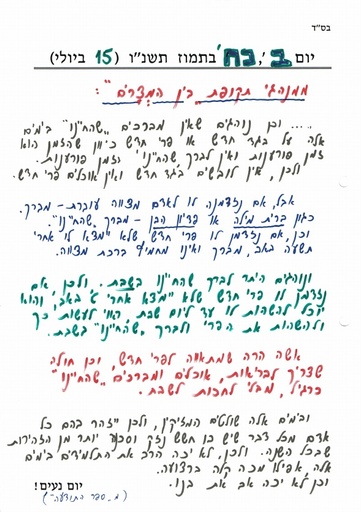 בס"ד
יום ב', כ"ח בתמוז תשנ"ו (15 ביולי)
ממנהגי תקופת "בין המצרים":
..... וכן נוהגים שאין מברכים "שהחיינו" בימים
אלה על בגד חדש או פרי חדש כיוון שהזמן הוא
זמן פורענות ואין לברך "שהחיינו" וזמן פורענות.
ולכן, אין לובשים בגד חדש ואין אוכלים פרי חדש.
אבל, אם נזדמנה לו לאדם מצווה עוברת - מברך.
כגון ברית מילה או פדיון הבן - מברך "שהחיינו".
וכן, אם נזדמן לו פרי חדש שלא ימצא לו אחרי
תשעה באב, מברך ואינו מחמיץ ברכת מצווה.
ונוהגים היתר לברך שהחיינו בשבת. ולכן, אם
נזדמן לו פרי חדש שלא ימצא אחרי ט' באב, והוא
יכול להשהות לו עד ליום שבת, ראוי לעשות כך
ולהשהות את הפרי ולברך "שהחיינו" בשבת.
אשה הרה שמתאווה לפרי חדש וכן חולה
שצריך לבריאות, אוכלים ומברכים "שהחיינו"
כרגיל, מבלי לחכות לשבת.
ובימים אלה שולטים המזיקין, ולכן יזהר בהם כל
אדם מכל דבר שיש בו חשש נזק וסכנה יותר מן הזהירות
שבכל השנה. ולכן, לא יכה הרב את התלמידים בימים
אלה, אפילו מכה קלה ברצועה.
וכן לא יכה אב את בנו.
יום נעים!
(מ"ספר התודעה")